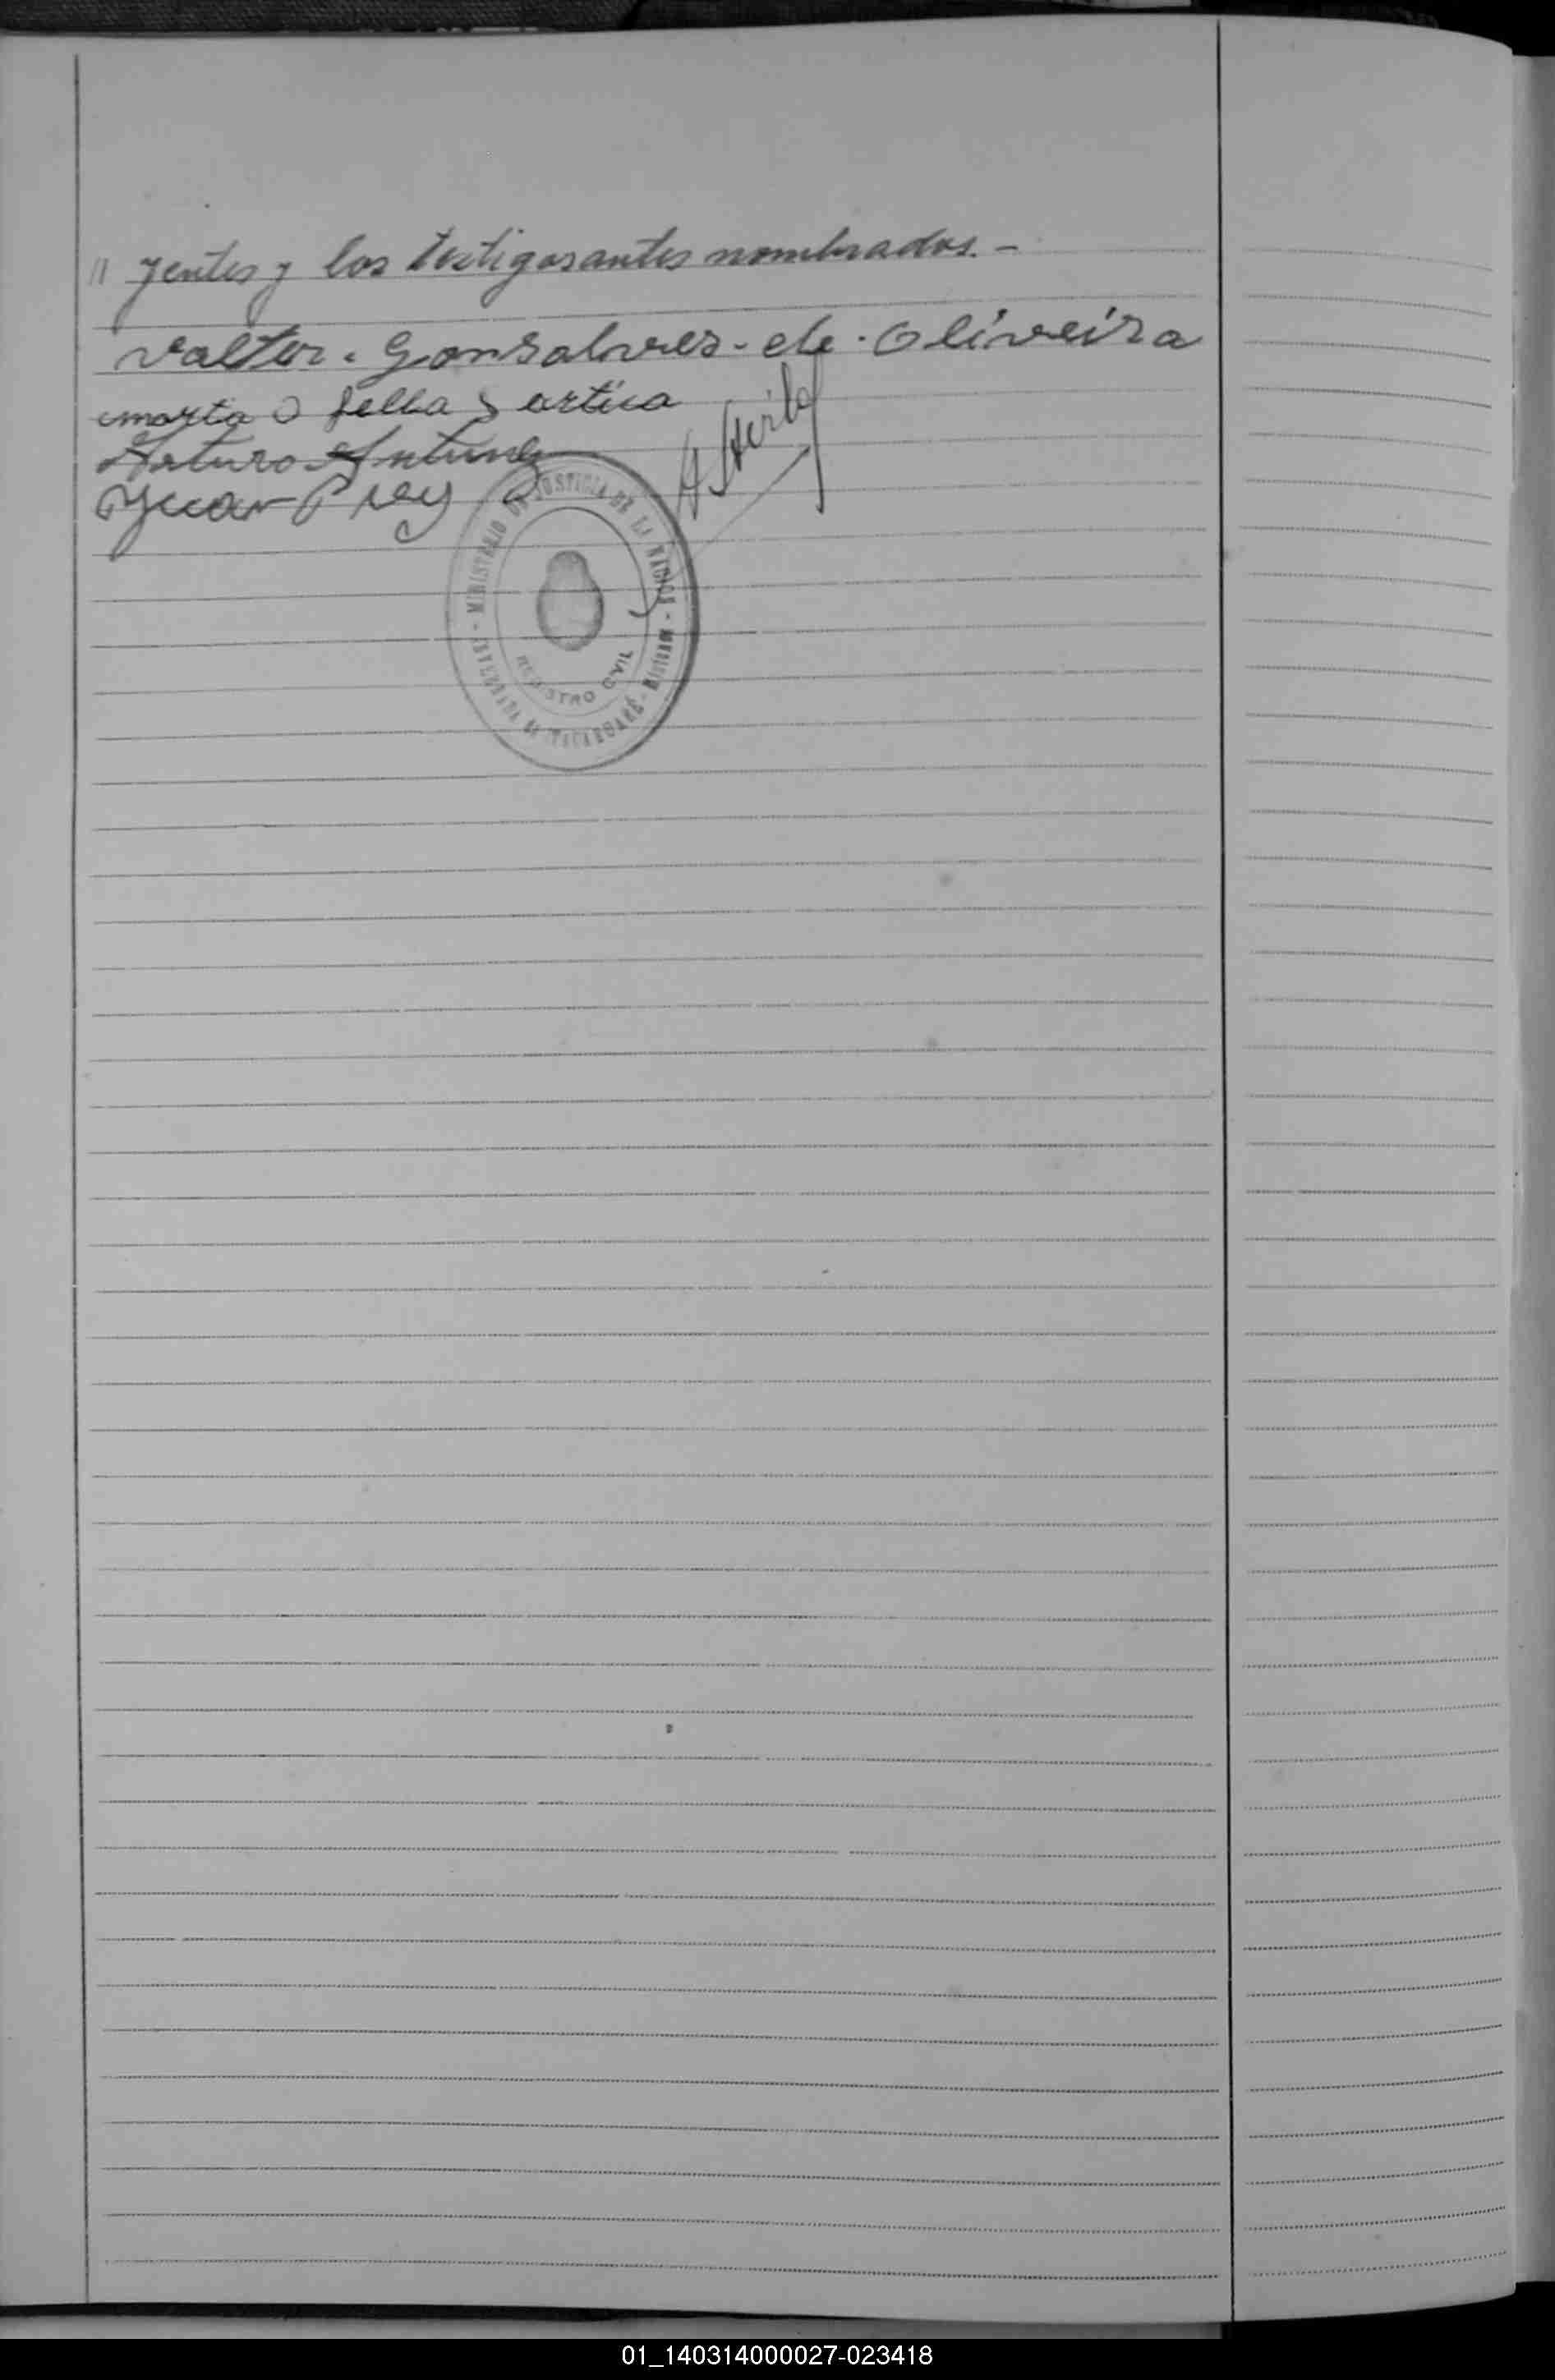 // yentes y los testigos antes nombrados. -
Valter. Gonsalves - de. Oliveira
marta O fella Sartica
Arturo Antunes
Juan Prey
MINISTERIO DE JUSTICIA DE LA NACION - MISIONES -
REGISTRO CIVIL
01_140314000027-023418